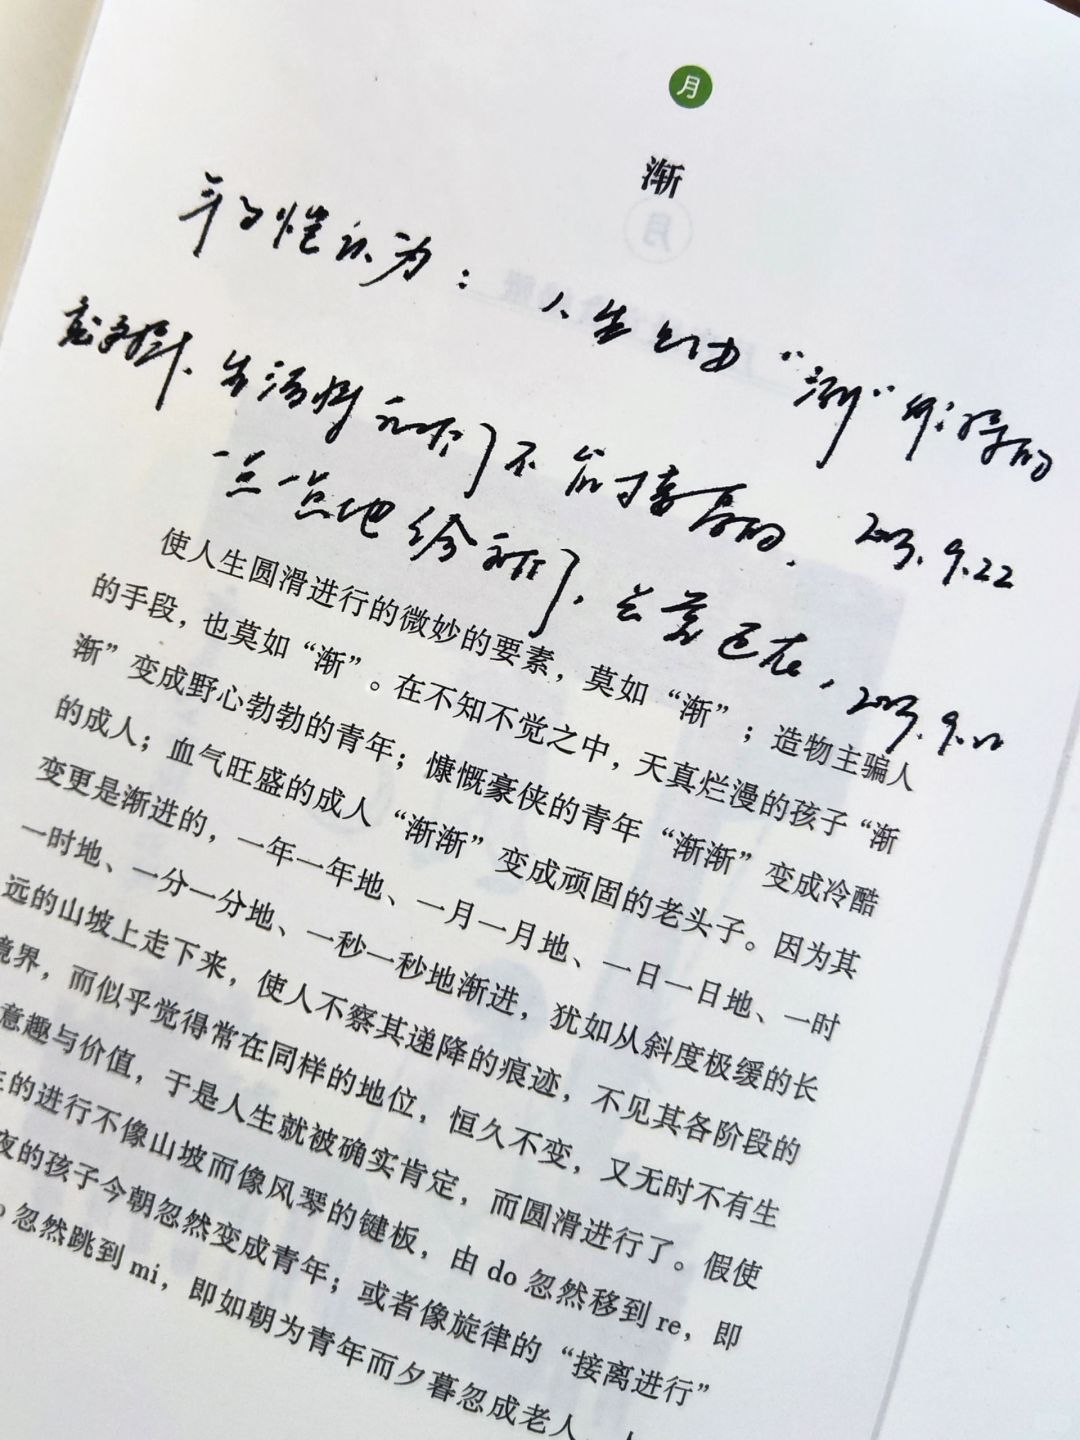 月
渐
丰子恺认为：人生是由“渐”维持的
就这样、生活将我们不能接受的、2023.9.22
一点一点地给我们、
使人生圆滑进行的微妙的要素，莫如“渐”；造物主骗人
的手段，也莫如“渐”。在不知不觉之中，天真烂漫的孩子“渐
渐”变成野心勃勃的青年；慷慨豪侠的青年“渐渐”变成冷酷
的成人；血气旺盛的成人“渐渐”变成顽固的老头子。因为其
变更是渐进的，一年一年地、一月一月地、一日一日地、一时
一时地、一分一分地、一秒一秒地渐进，犹如从斜度极缓的长
远的山坡上走下来，使人不察其递降的痕迹，不见其各阶段的
境界，而似乎觉得常在同样的地位，恒久不变，又无时不有生
意趣与价值，于是人生就被确实肯定，而圆滑进行了。假使
的进行不像山坡而像风琴的键板，由do忽然移到re，即
夜的孩子今朝忽然变成青年；或者像旋律的“接离进行”
忽然跳到mi，即如朝为青年而夕暮忽成老人，